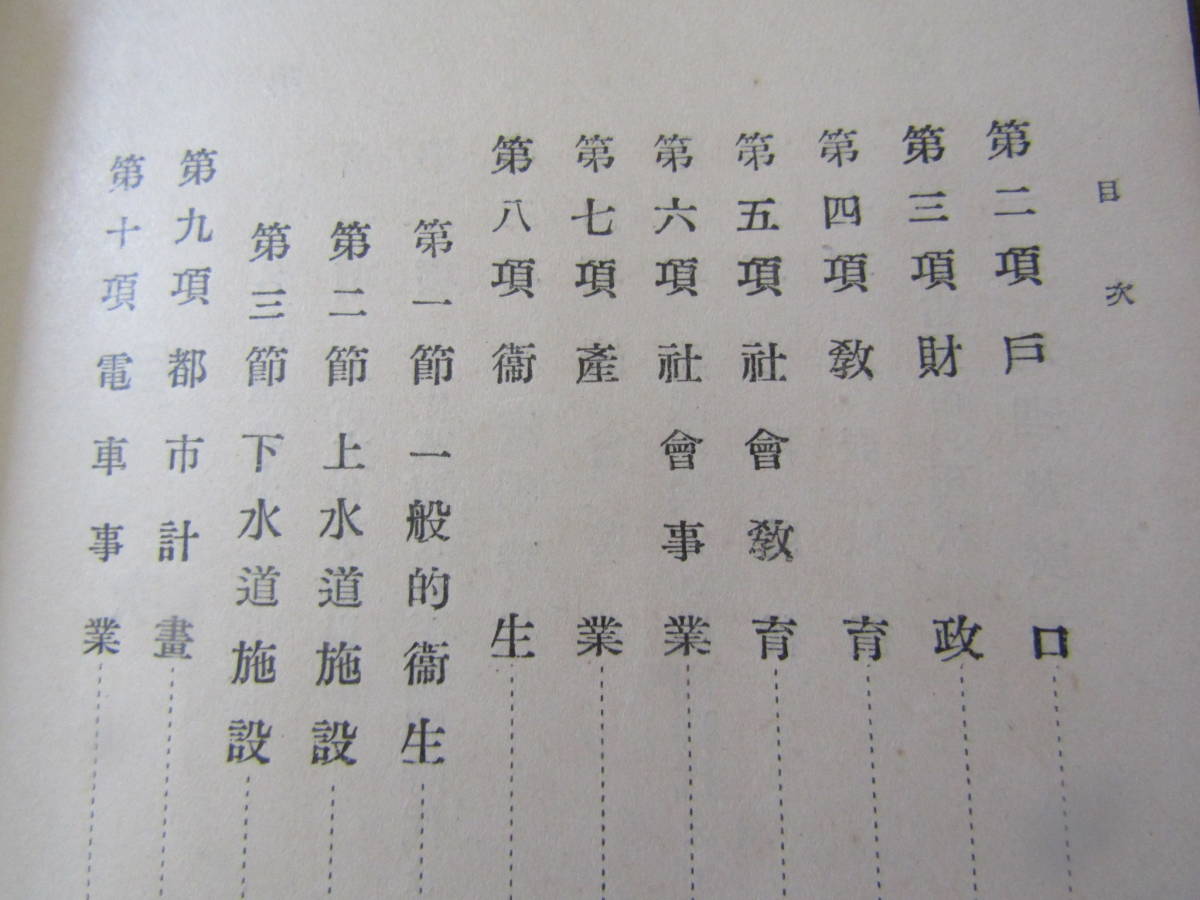 目次
第二項 戶口
第三項 財政
第四項 敎育
第五項 社會敎育
第六項 社會事業
第七項 產業
第八項 衞生
第一節 一般的衞生
第二節 上水道施設
第三節 下水道施設
第九項 都市計畫
第十項 電車事業